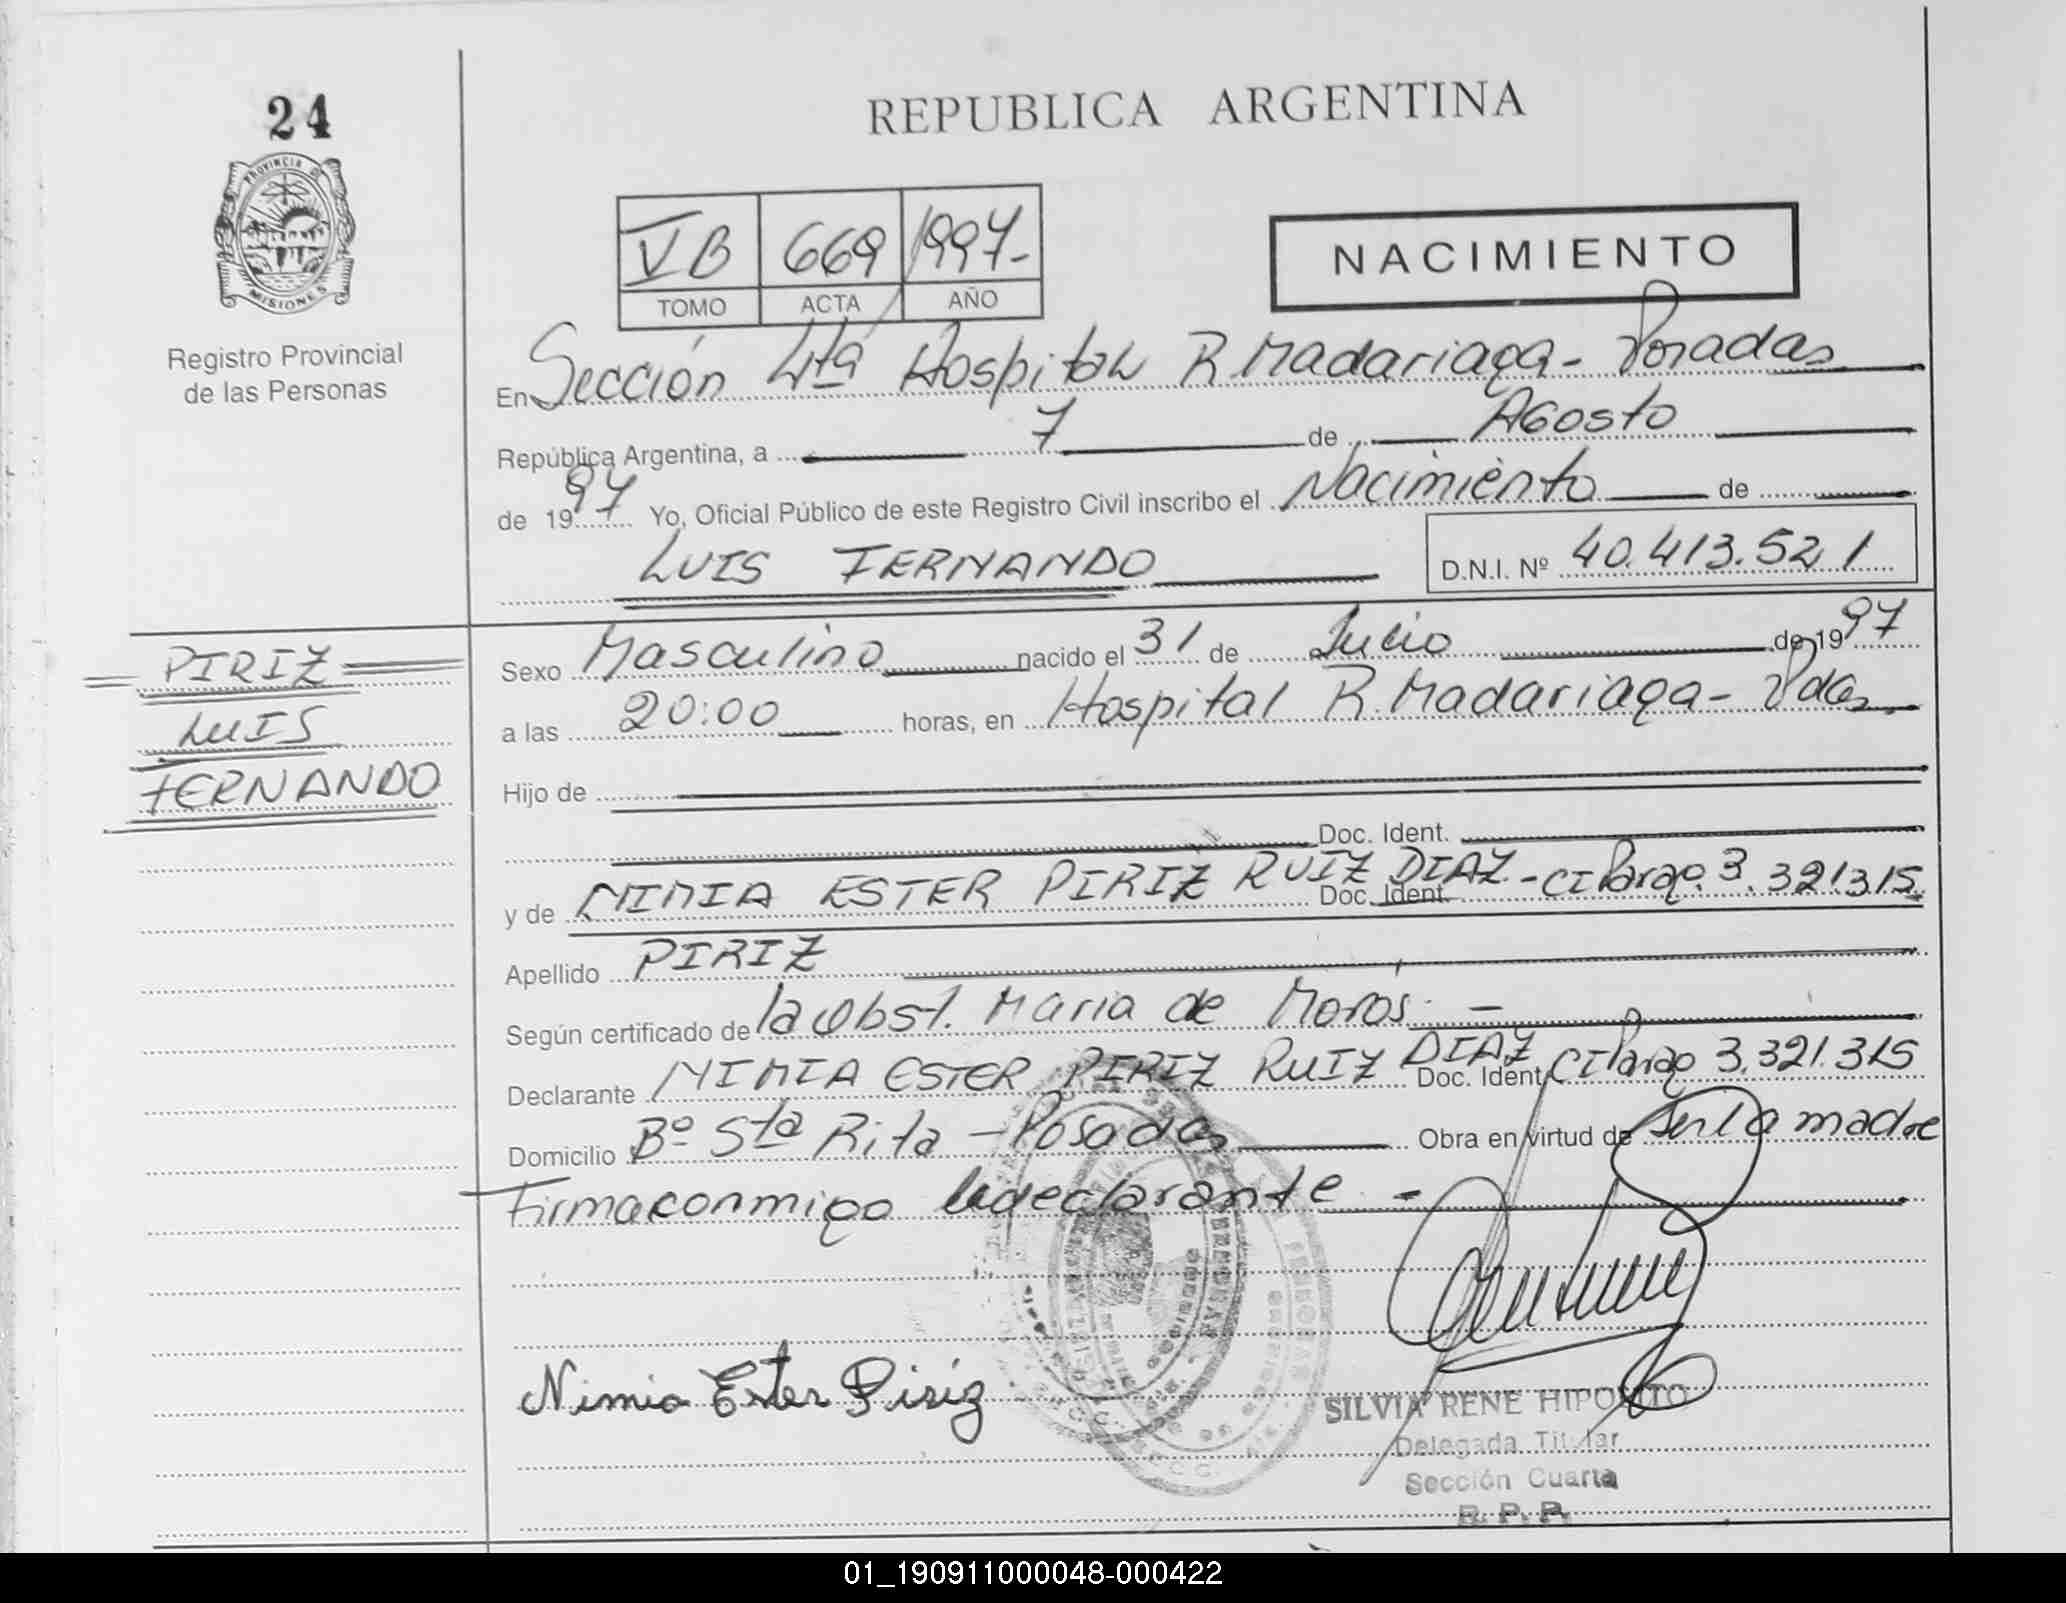 24
PROVINCIA DE
MISIONES
Registro Provincial
de las Personas
REPUBLICA ARGENTINA
VB 669 1997-
TOMO ACTA AÑO
NACIMIENTO
En Sección 4ta Hospital R. Madariaga - Posadas
República Argentina, a 7 de Agosto
de 1997 Yo, Oficial Público de este Registro Civil inscribo el Nacimiento de
LUIS FERNANDO D.N.I. Nº 40.413.521
PIRIZ
LUIS
FERNANDO
Sexo Masculino nacido el 31 de Julio de 1997
a las 20:00 horas, en Hospital R. Madariaga - Pdas.
Hijo de
Doc. Ident.
y de NIMIA ESTER PIRIZ RUIZ DIAZ - Doc. Ident. CI Parag. 3.321.315
Apellido PIRIZ
Según certificado de la Obst. Maria de Moros. -
Declarante NIMIA ESTER PIRIZ RUIZ DIAZ Doc. Ident. CI Parag 3.321.315
Domicilio Bº Sta Rita - Posadas Obra en virtud de ser la madre
Firma conmigo la declarante. -
Nimia Ester Piriz
SILVIA RENE HIPOLITO
Delegada Titular
Sección Cuarta
R. P. P.
01_190911000048-000422